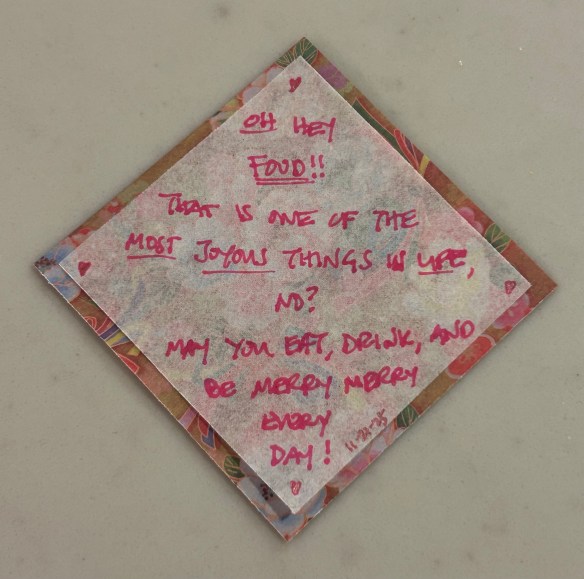 OH HEY
FOOD!!
THAT IS ONE OF THE
MOST JOYOUS THINGS IN LIFE,
NO?
MAY YOU EAT, DRINK, AND
BE MERRY MERRY
EVERY
DAY!